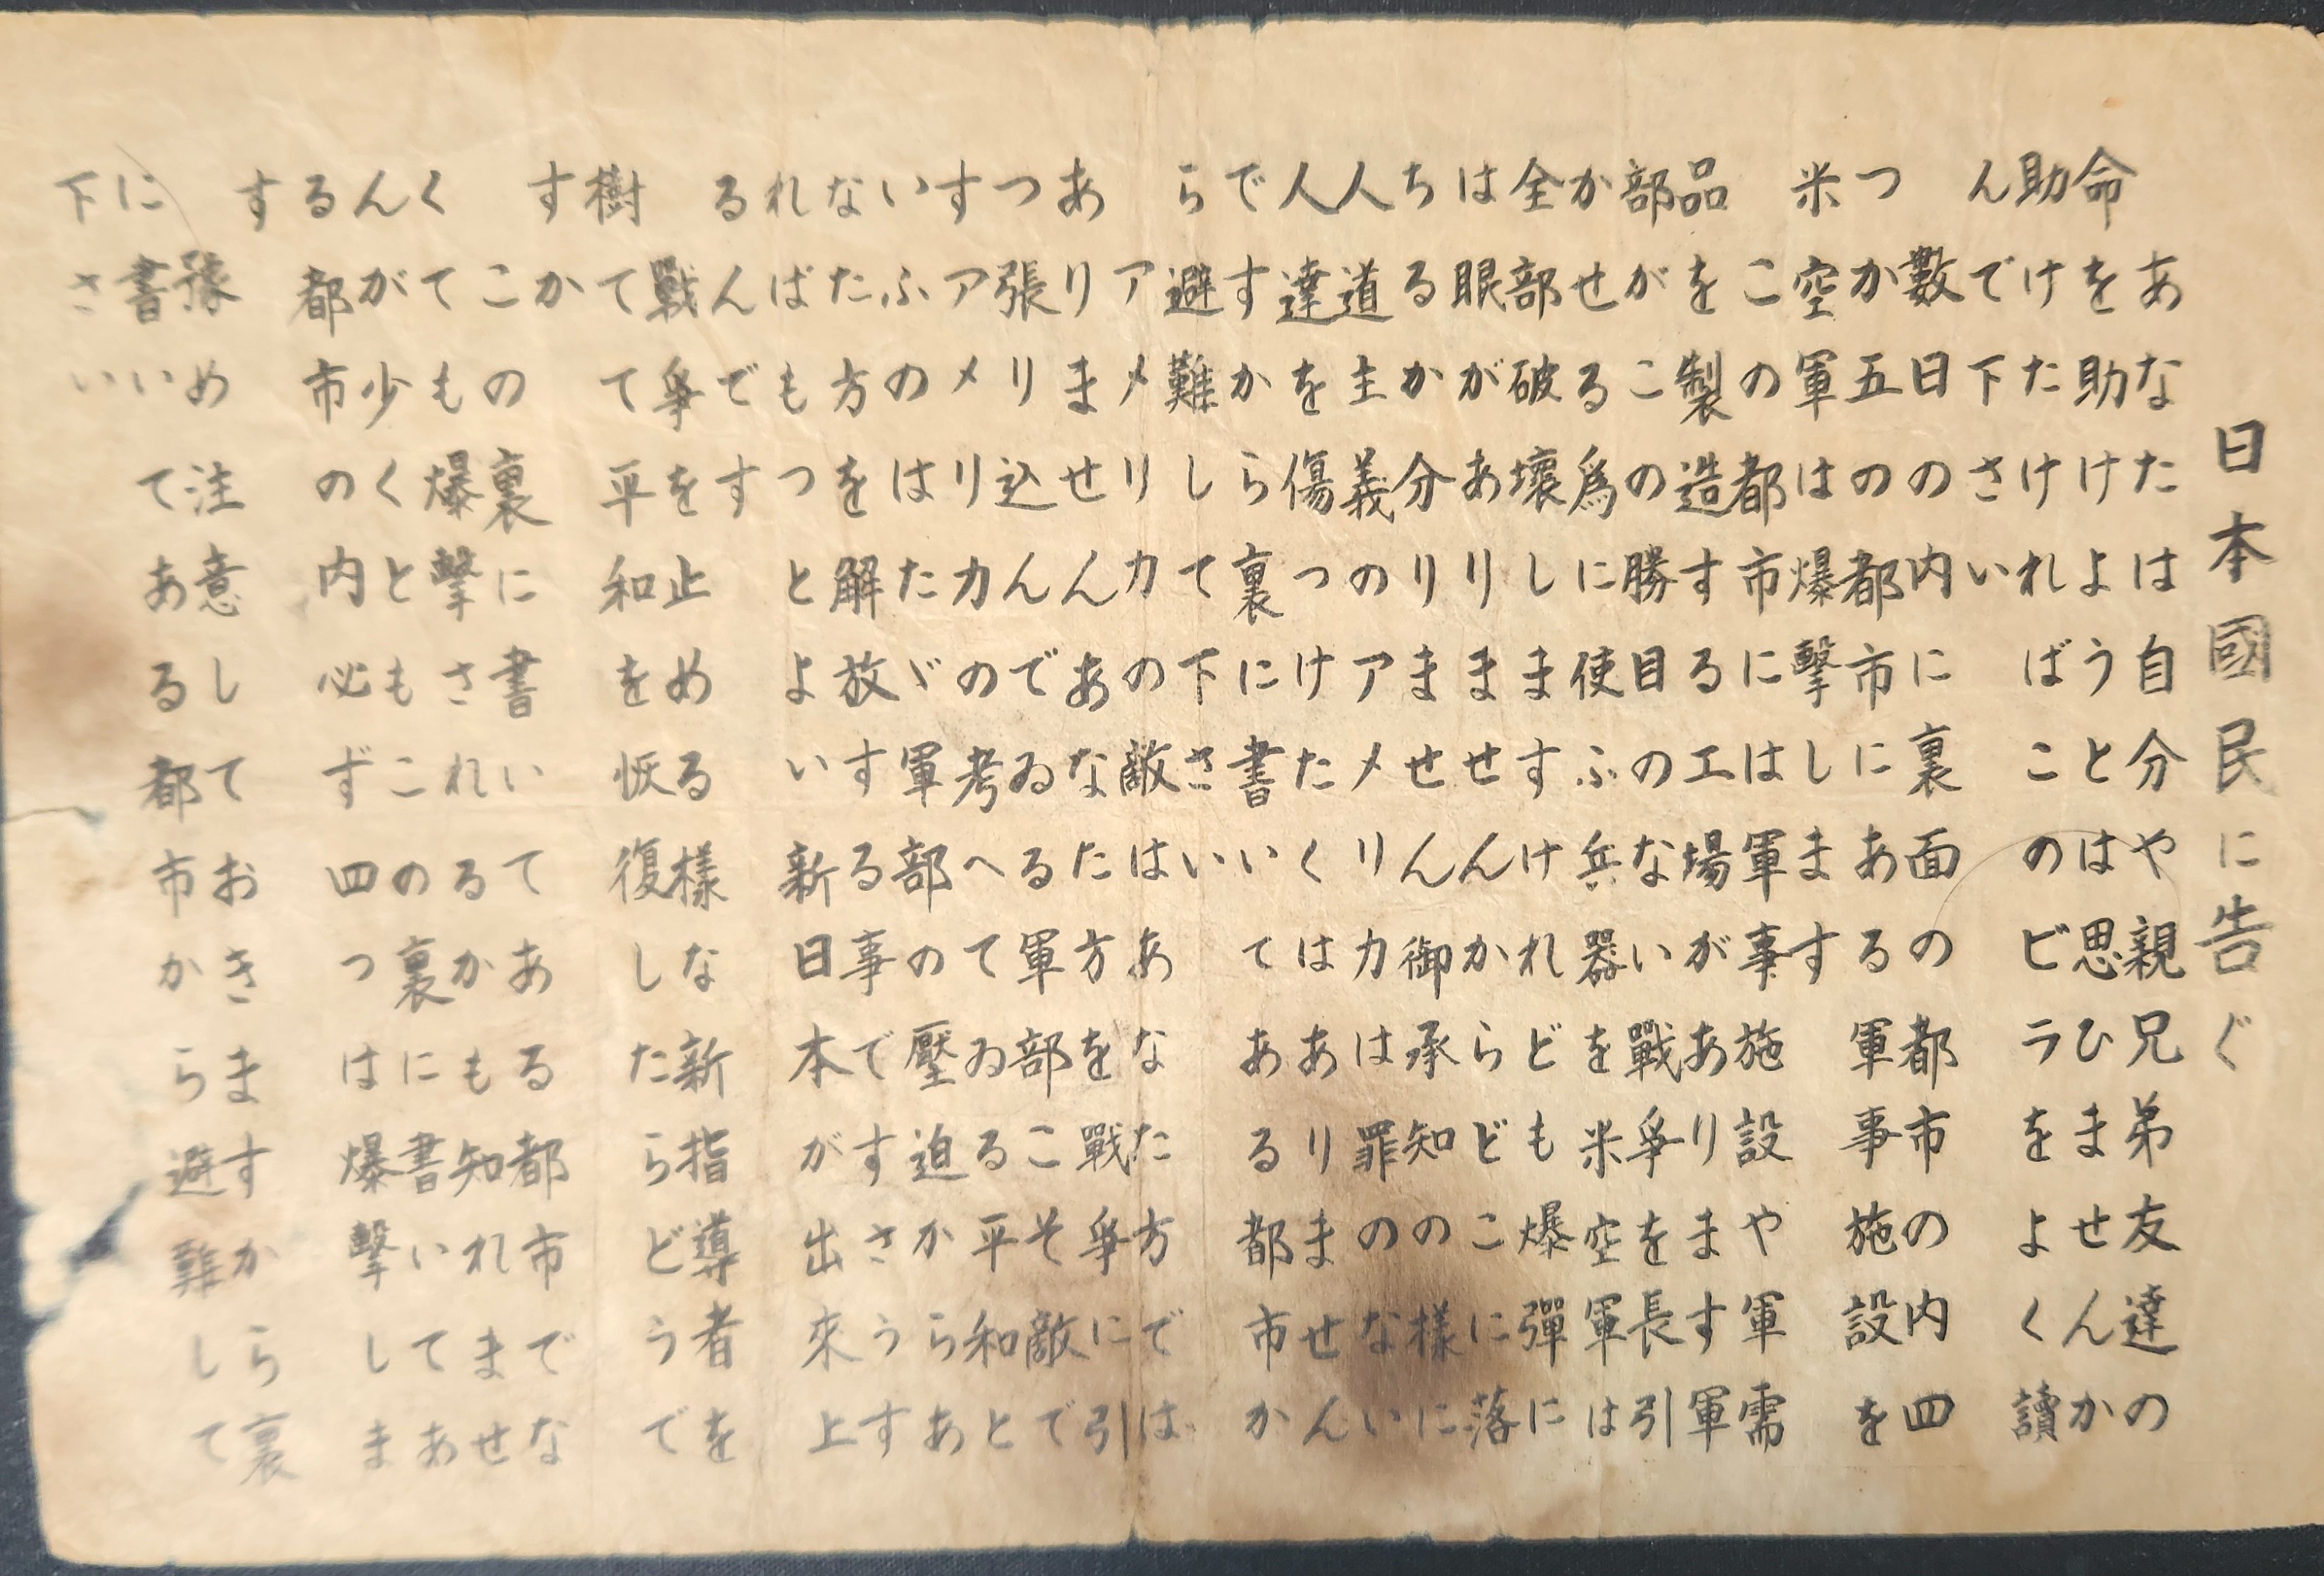 日本國民に告ぐ
あなたは自分や親兄弟友達の
命を助けようとは思ひませんか
助けたければこのビラをよく讀
んで下さい
數日の内に裏面の都市の内四
つか五の都市にある軍事施設を
米空軍は爆撃します
この都市には軍事施設や軍需
品を製造する工場があります軍
部がこの勝目のない戰爭を長引
かせる爲に使ふ兵器を米空軍は
全部破壞しますけれども爆彈に
は眼がありませんからどこに落
ちるか分りません御承知の様に
人道主義のアメリカは罪のない
人達を傷つけたくはありません
ですから裏に書いてある都市か
ら避難して下さい
アメリカの敵はあなた方では
ありませんあなた方を戰爭に引
つ張り込んでゐる軍部こそ敵で
すアメリカの考へてゐる平和と
いふのはたゞ軍部の壓迫からあ
なた方を解放する事ですさうす
ればもつとよい新日本が出來上
るんです
戰爭を止める樣な新指導者を
樹てて平和を恢復したらどうで
すか
この裏に書いてある都市でな
くても爆撃されるかも知れませ
んが少くともこの裏に書いてあ
る都市の内必ず四つは爆撃しま
す
豫め注意しておきますから裏
に書いてある都市から避難して
下さい